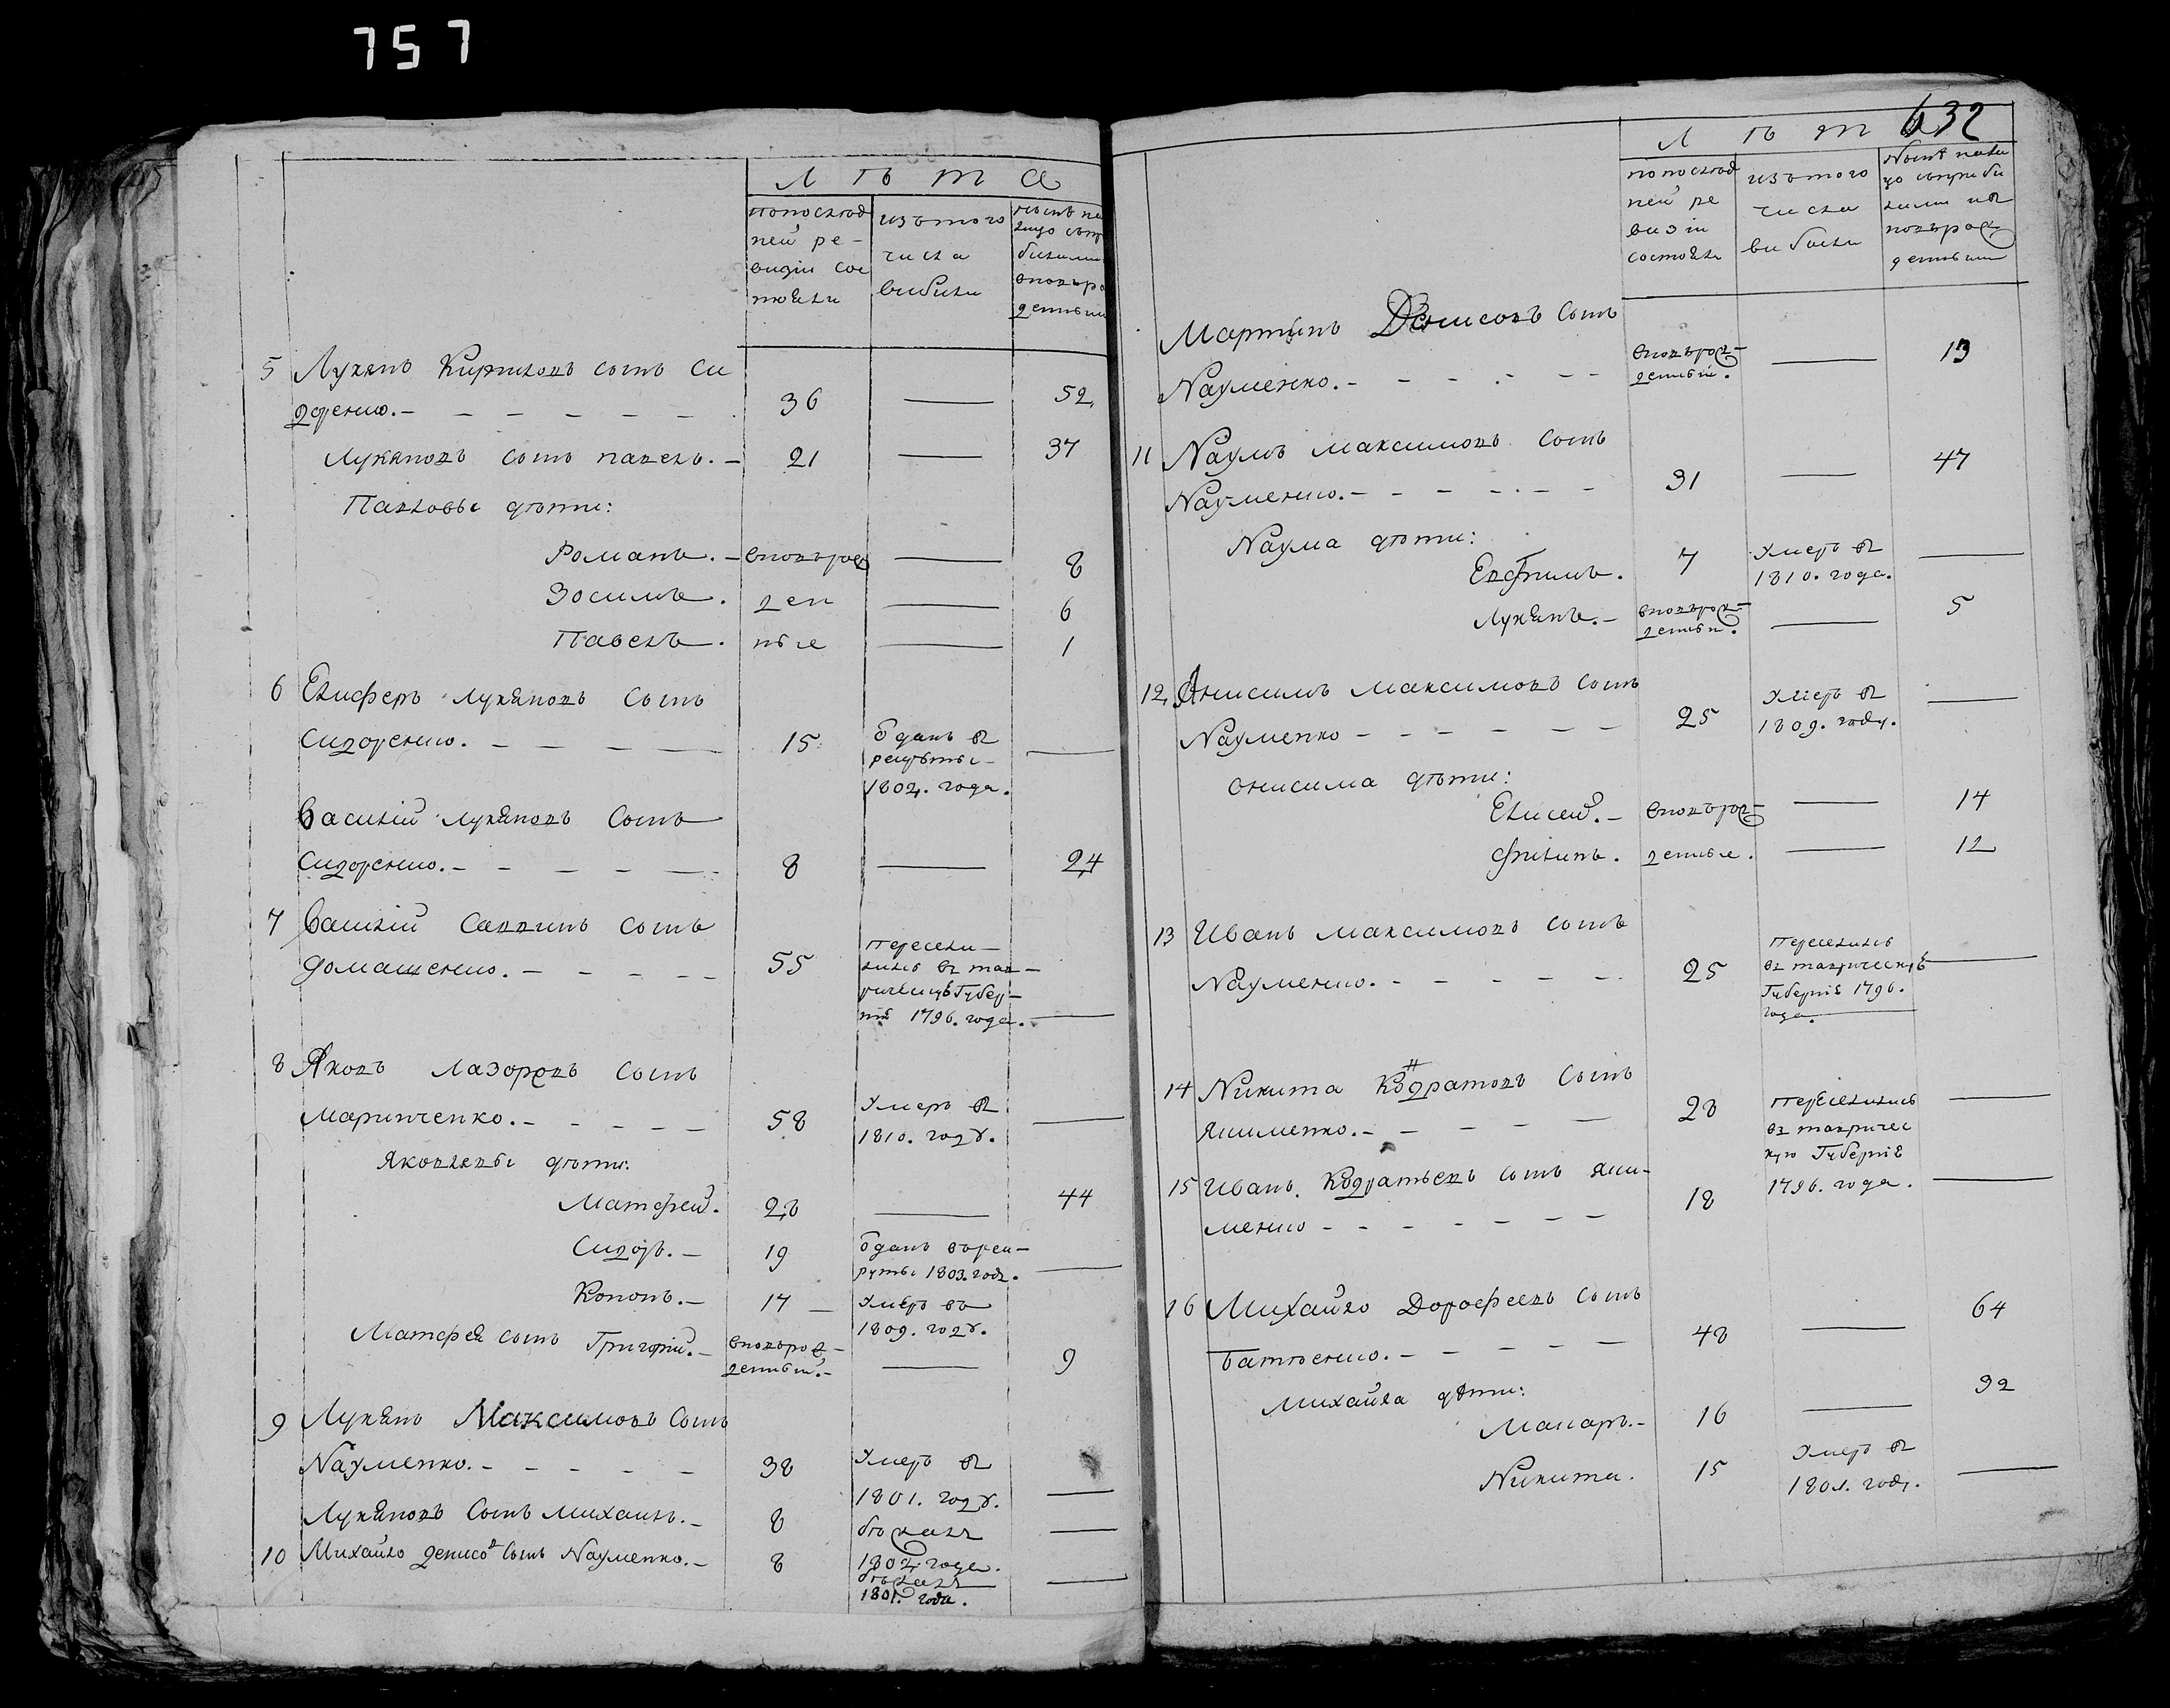 757
Лѣта
по послѣд
ней ре-
визіи сос
тояли
изъ того
числа
выбыли
5 Лукянъ Кириловъ сынъ Си
доренко. 36 — 52
Лукяновъ сынъ павелъ. 21 — 37
Павловы дѣти:
Романъ. вновьрож — 8
Зосимъ. ден — 6
Павелъ. ные — 1
6 Елиферъ Лукяновъ сынъ
Сидоренко. 15 Отданъ въ
рекруты
1804. года. —
Василій Лукяновъ сынъ
Сидоренко. 8 — 24
7 Василій Саввинъ сынъ
Домашенко. 55 пересели-
лись въ тав-
рическую Губер-
нію 1796. года. —
8 Яковъ Лазоровъ сынъ
Маринченко. 58 Умеръ въ
1810. году. —
Яковлевы дѣти:
Матфей. 28 — 44
Сидоръ. 19 Отданъ върек-
руты 1803. года. —
Кононъ. 17 Умеръ въ
1809. году.
Матфея сынъ Григорій. вновьрож-
денный. — 9
9 Лукянъ Максимовъ сынъ
Науменко. 38 Умеръ въ
1801. году. —
Лукяновъ сынъ Михаилъ. 8 бѣжалъ
1802. года. —
10 Михайло Денисовъ сынъ Науменко. 8 бѣжалъ
1801. года. —
632
Лѣт
по послѣд
ней ре
визіи
состояли
изътого
числа
выбыли
Мартинъ Денисовъ сынъ
Науменко. вновьрож-
денный. — 13
11 Наумъ Максимовъ сынъ
Науменко. 31 — 47
Наума дѣти:
Евфимъ. 7 Умеръ въ
1810. года. —
Лукянъ. вновьрож-
денный. — 5
12 Онисимъ Максимовъ сынъ
Науменко 25 Умеръ въ
1809. году. —
Онисима дѣти:
Елисей. вновьрож- — 14
Филипъ. денные. — 12
13 Иванъ Максимовъ сынъ
Науменко. 25 переселились
въ таврическую
Губернію 1796.
года. —
14 Никита Кондратовъ сынъ
Якименко. 28 переселились —
въ тавричес
кую Губернію
15 Иванъ Кондратьевъ сынъ Яки-
менко 18 1796. года. —
16 Михайло Дорофеевъ сынъ
Батѣенко. 48 — 64
Михайла дѣти:
Макаръ. 16 — 32
Никита. 15 Умеръ въ
1801. году. —